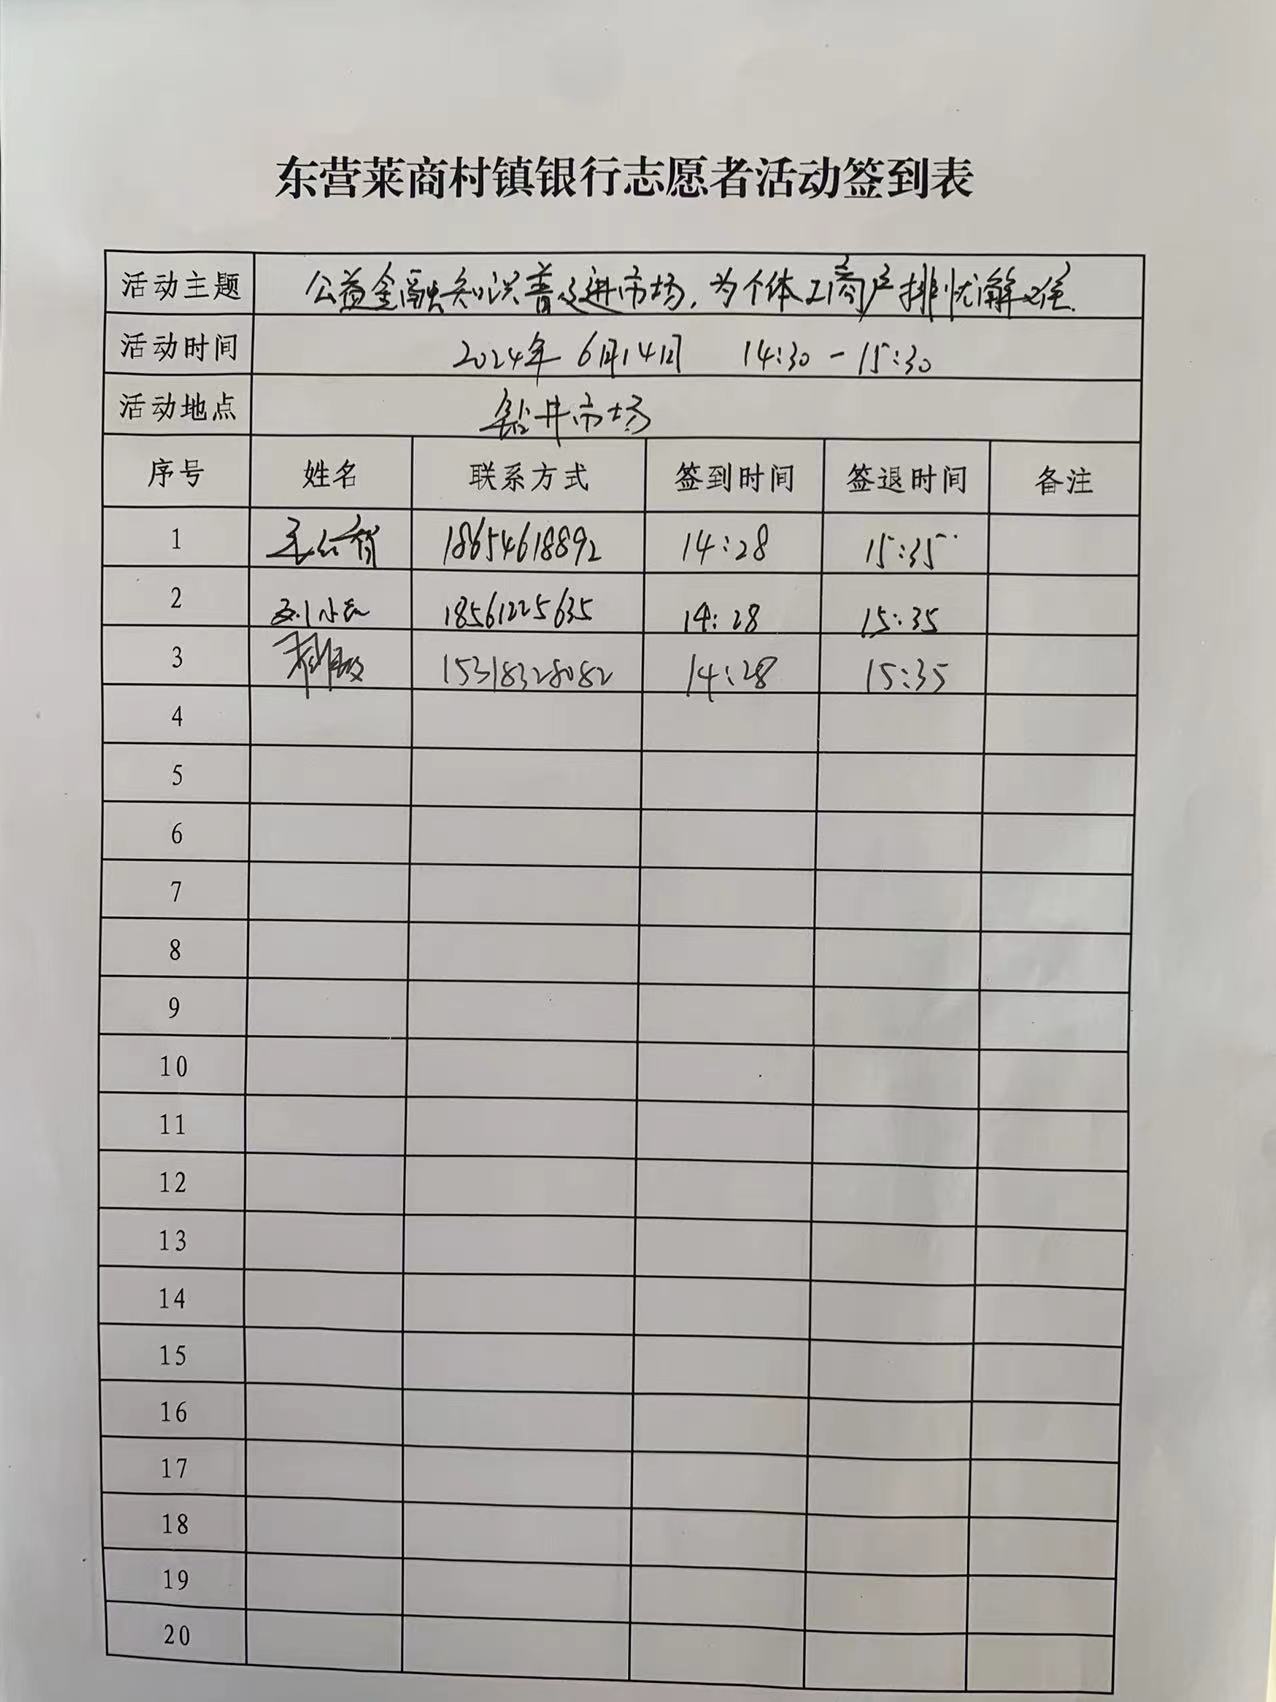 东营莱商村镇银行志愿者活动签到表
活动主题 公益金融知识普及进市场，为个体工商户排忧解难.
活动时间 2024年 6月14日 14:30-15:30
活动地点 钻井市场
序号 姓名 联系方式 签到时间 签退时间 备注
1 18654618892 14:28 15:35
2 18561225635 14:28 15:35
3 15318328082 14:28 15:35
4
5
6
7
8
9
10
11
12
13
14
15
16
17
18
19
20